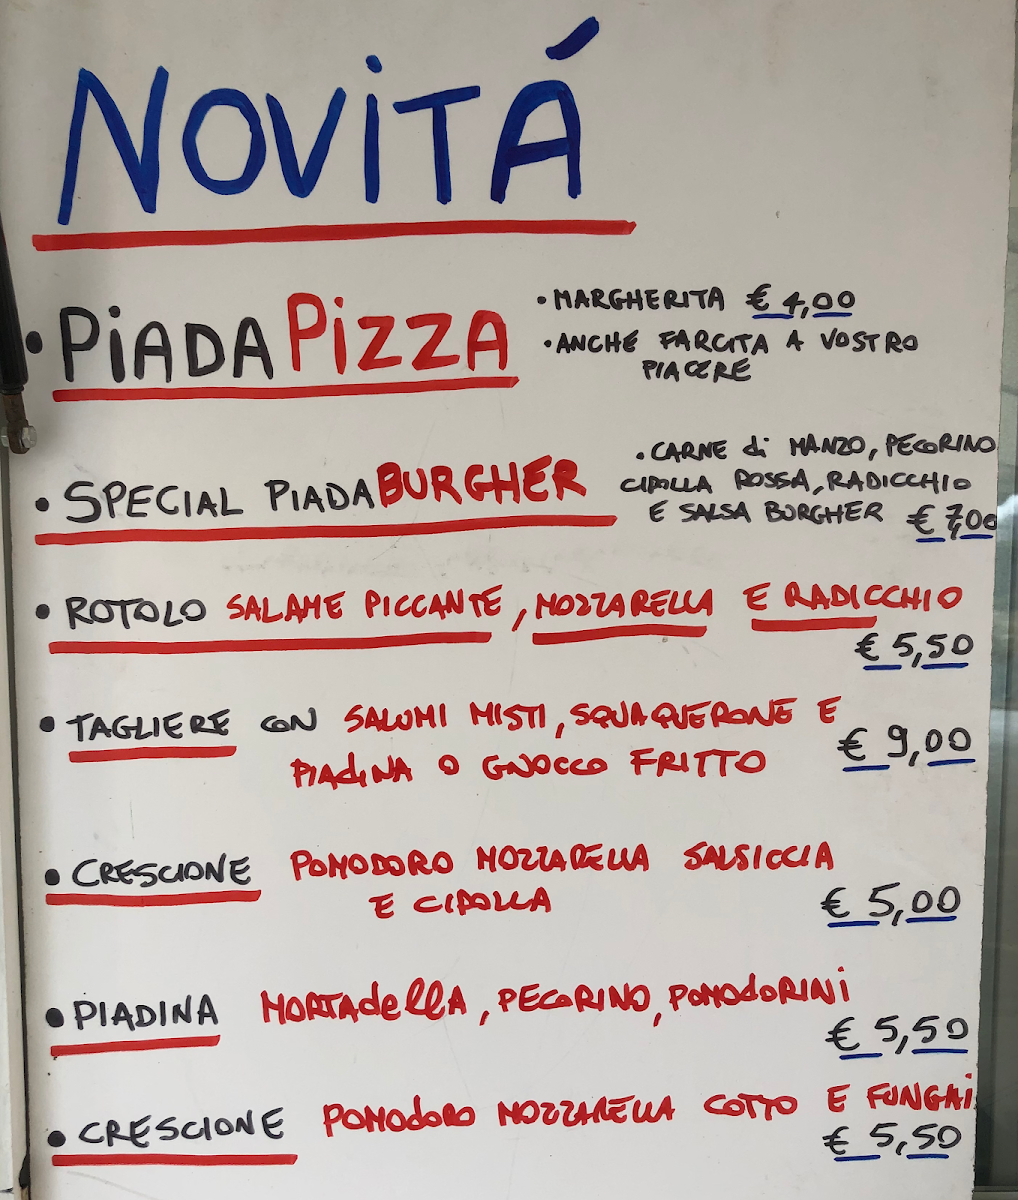 NOVITÁ
• PiADAPiZZA
• MARGHERITA € 4,00
• ANCHE FARCITA A VOSTRO
PIACERE
• SPECIAL PIADABURGHER
• CARNE di MANZO, PECORINO
CIPOLLA ROSSA, RADICCHIO
E SALSA BURGHER € 7,00
• ROTOLO SALAME PICCANTE, MOZZARELLA E RADICCHIO
€ 5,50
• TAGLIERE CON SALUMI MISTI, SQUAQUERONE E
PIADINA O GNOCCO FRITTO € 9,00
• CRESCIONE POMODORO MOZZARELLA SALSICCIA
E CIPOLLA € 5,00
• PIADINA MORTAdellA, PECORINO, POMODORINi
€ 5,50
• CRESCIONE POMODORO MOZZARELLA COTTO E FUNGHI
€ 5,50